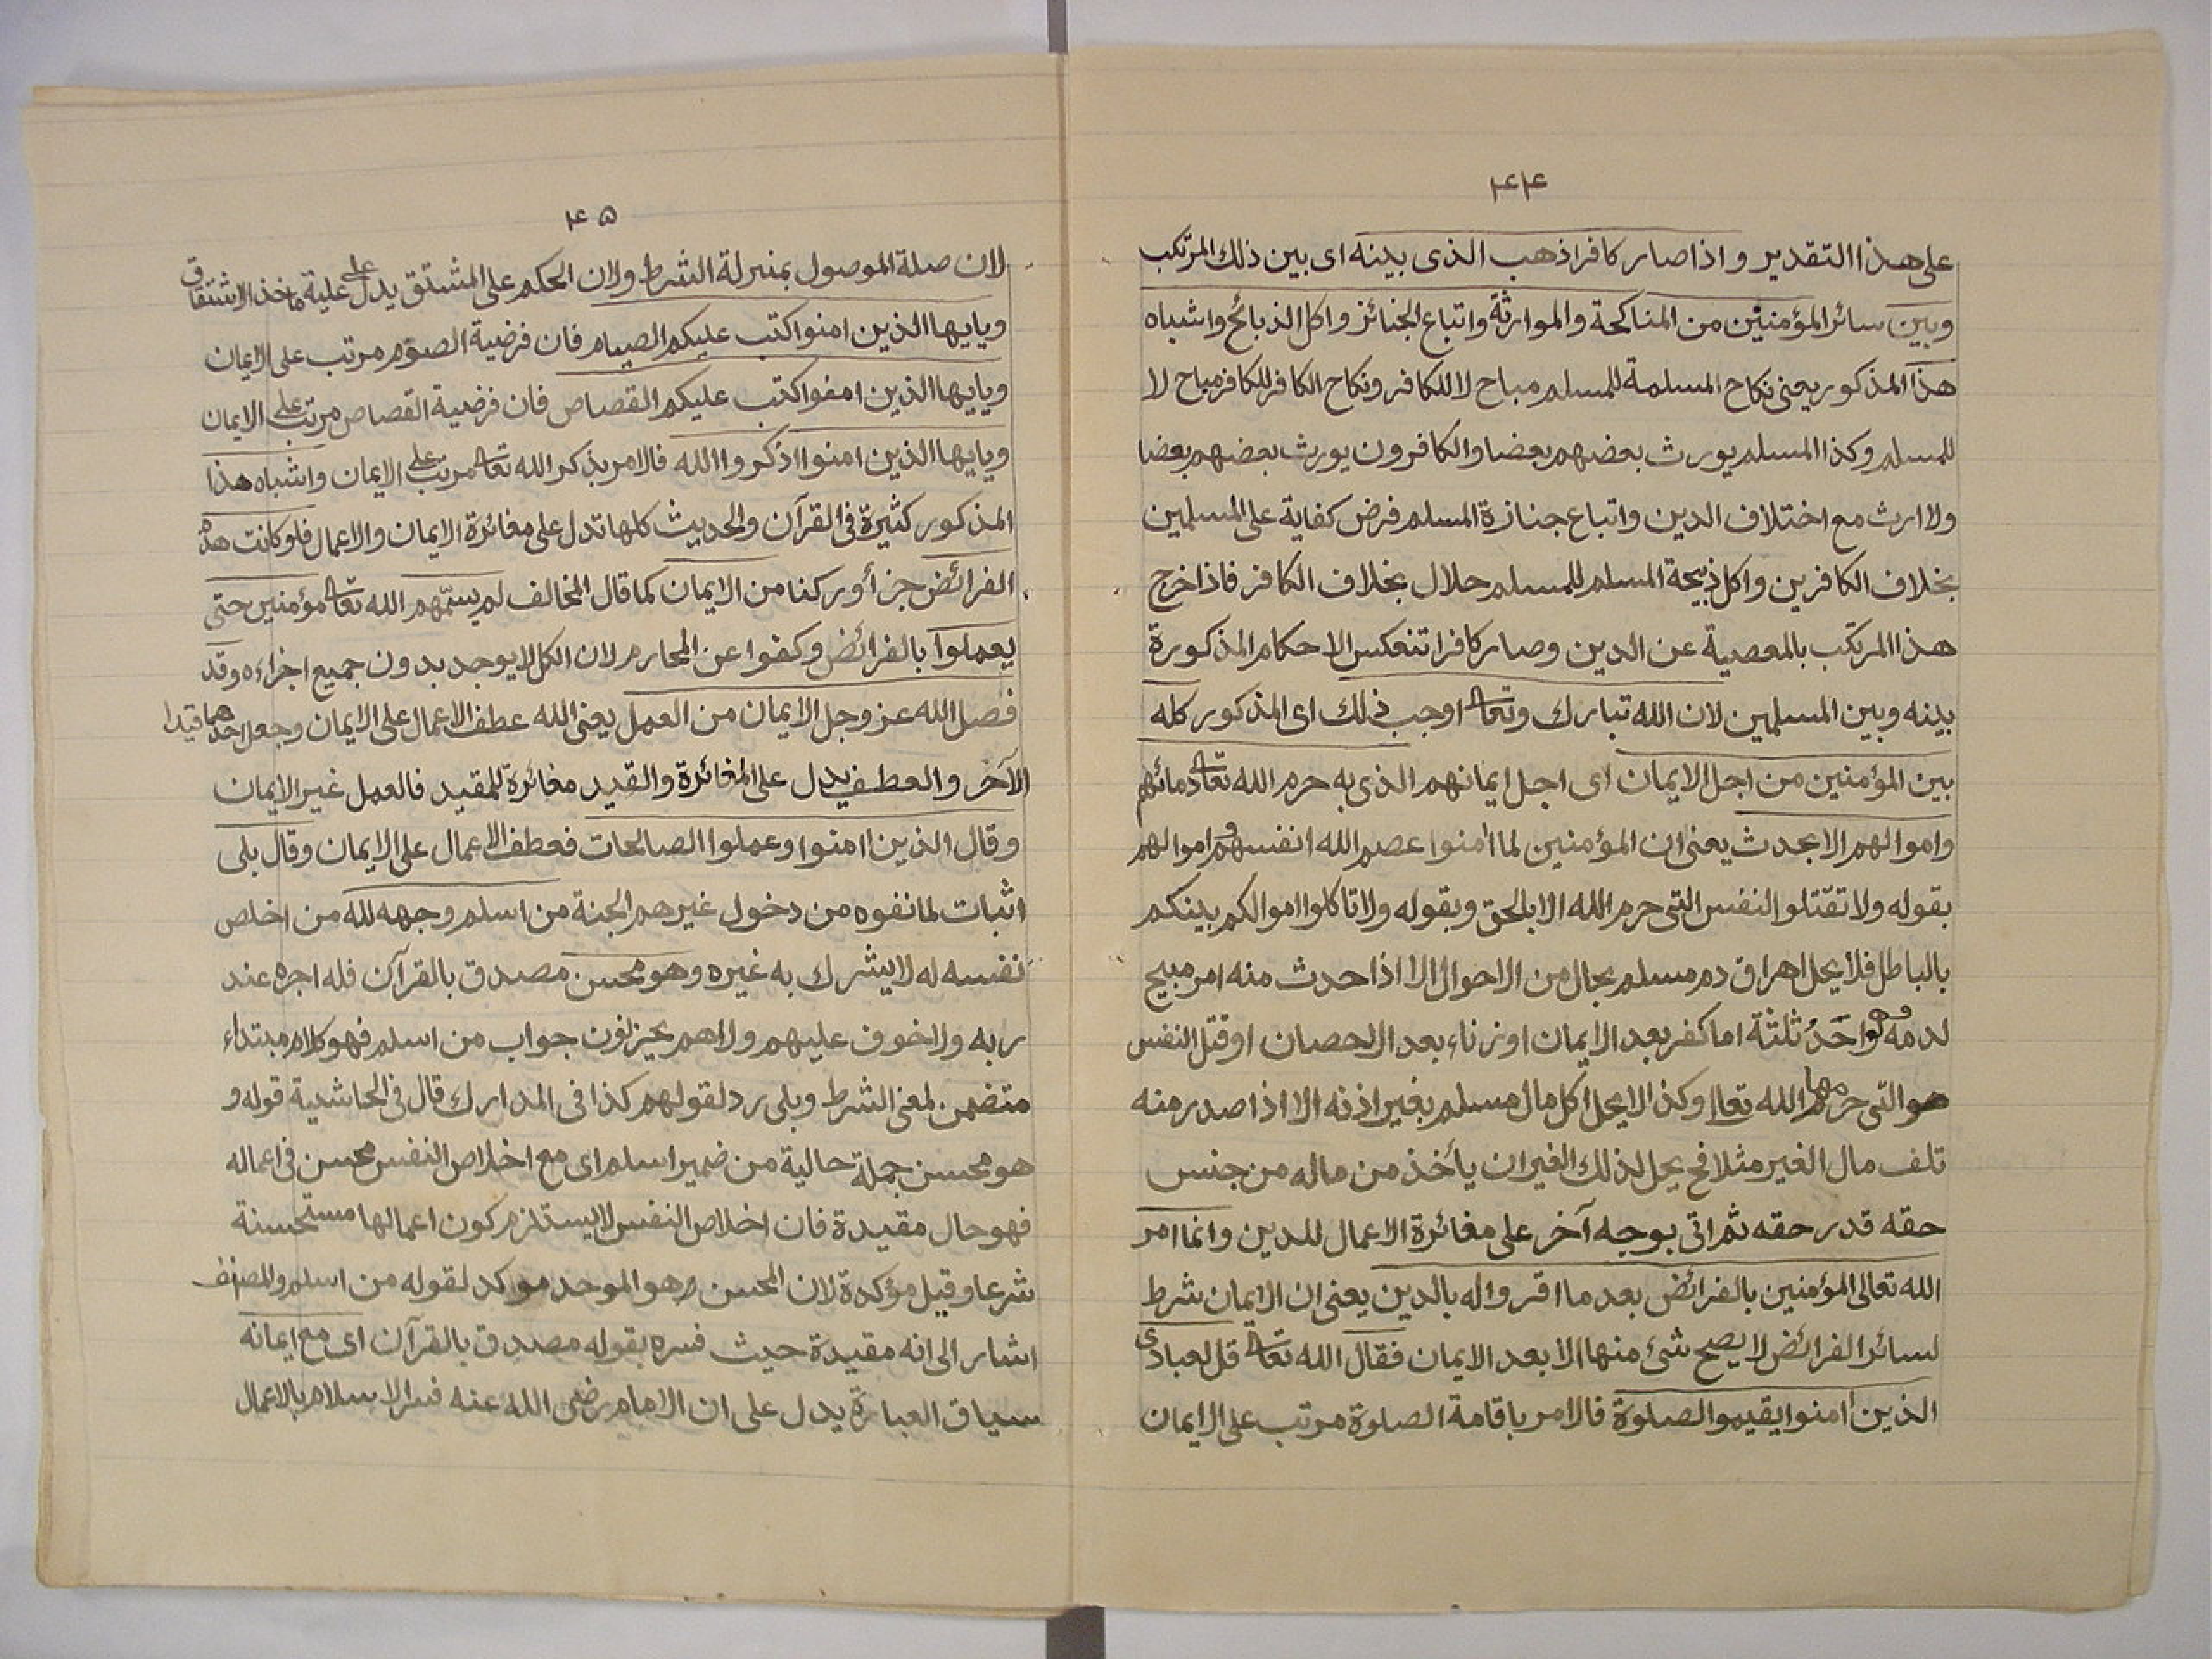 ۴۴
على هذا التقدير واذا صار كافرا ذهب الذى بينه اى بين ذلك المرتكب
وبين سائر المؤمنين من المناكحة والموارثة واتباع الجنائز واكل الذبائح واشباه
هذا المذكور يعنى نكاح المسلمة للمسلم مباح لا للكافر ونكاح الكافر للكافر مباح لا
للمسلم وكذا المسلم يورث بعضهم بعضا والكافرون يورث بعضهم بعضا
ولا ارث مع اختلاف الدين واتباع جنازة المسلم فرض كفاية على المسلمين
بخلاف الكافرين واكل ذبيحة المسلم للمسلم حلال بخلاف الكافر فاذا خرج
هذا المرتكب بالمعصية عن الدين وصار كافرا تنعكس الاحكام المذكورة
بينه وبين المسلمين لان الله تبارك وتعا اوجب ذلك اى المذكور كله
بين المؤمنين من اجل الايمان اى اجل ايمانهم الذى به حرم الله تعا دمائهم
واموالهم الا بحدث يعنى ان المؤمنين لما امنوا عصم الله انفسهم واموالهم
بقوله ولا تقتلو النفس التى حرم الله الا بالحق وبقوله ولا تاكلوا اموالكم بينكم
بالباطل فلا يحل اهراق دم مسلم بحال من الاحوال الا اذا حدث منه امر مبيح
لدمه وهو احَدُ ثلثة اما كفر بعد الايمان او زناء بعد الاحصان او قتل النفس
هو التى حرمها الله تعالى وكذا لا يحل اكل مال مسلم بغير اذنه الا اذا صدر منه
تلف مال الغير مثلا فح يحل لذلك الغير ان يأخذ من ماله من جنس
حقه قدر حقه ثم اتى بوجه آخر على مغائرة الاعمال للدين وانما امر
الله تعالى المؤمنين بالفرائض بعد ما اقروا له بالدين يعنى ان الايمان شرط
لسائر الفرائض لا يصح شئ منها الا بعد الايمان فقال الله تعا قل لعبادى
الذين امنوا يقيموا الصلوة فالامر باقامة الصلوة مرتب على الايمان
۴۵
لان صلة الموصول بمنزلة الشرط ولان الحكم على المشتق يدل على علية ماخذ الاشتقاق
ويايها الذين امنوا كتب عليكم الصيام فان فرضية الصوم مرتب على الايمان
ويايها الذين امنوا كتب عليكم القصاص فان فرضية القصاص مرتب على الايمان
ويايها الذين امنوا اذكروا الله فالامر بذكر الله تعا مرتب على الايمان واشباه هذا
المذكور كثيرة فى القرآن والحديث كلها تدل على مغائرة الايمان والاعمال فلو كانت هذه
الفرائض جزأ وركنا من الايمان كما قال المخالف لم يسمّهم الله تعا مؤمنين حتى
يعملوا بالفرائض وكفوا عن المحارم لان الكل لا يوجد بدون جميع اجزاءه وقد
فصل الله عز وجل الايمان من العمل يعنى الله عطف الاعمال على الايمان وجعل احدهما قيدا
الآخر والعطف يدل على المغائرة والقيد مغائرة للمقيد فالعمل غير الايمان
وقال الذين امنوا وعملوا الصالحات فعطف الاعمال على الايمان وقال بلى
اثبات لما نفوه من دخول غيرهم الجنة من اسلم وجهه لله من اخلص
نفسه له لا يشرك به غيره وهو محسن مصدق بالقرآن فله اجره عند
ربه ولا خوف عليهم ولا هم يحزنون جواب من اسلم فهو كلام مبتداء
متضمن لمعنى الشرط وبلى رد لقولهم كذا فى المدارك قال فى الحاشية قوله و
هو محسن جملة حالية من ضمير اسلم اى مع اخلاص النفس محسن فى اعماله
فهو حال مقيدة فان اخلاص النفس لا يستلزم كون اعمالها مستحسنة
شرعا وقيل مؤكدة لان المحسن هو الموحد موكد لقوله من اسلم والمصنف
اشار الى انه مقيدة حيث فسره بقوله مصدق بالقرآن اى مع ايمانه
سياق العبارة يدل على ان الامام رضى الله عنه فسر الاسلام بالاعمال